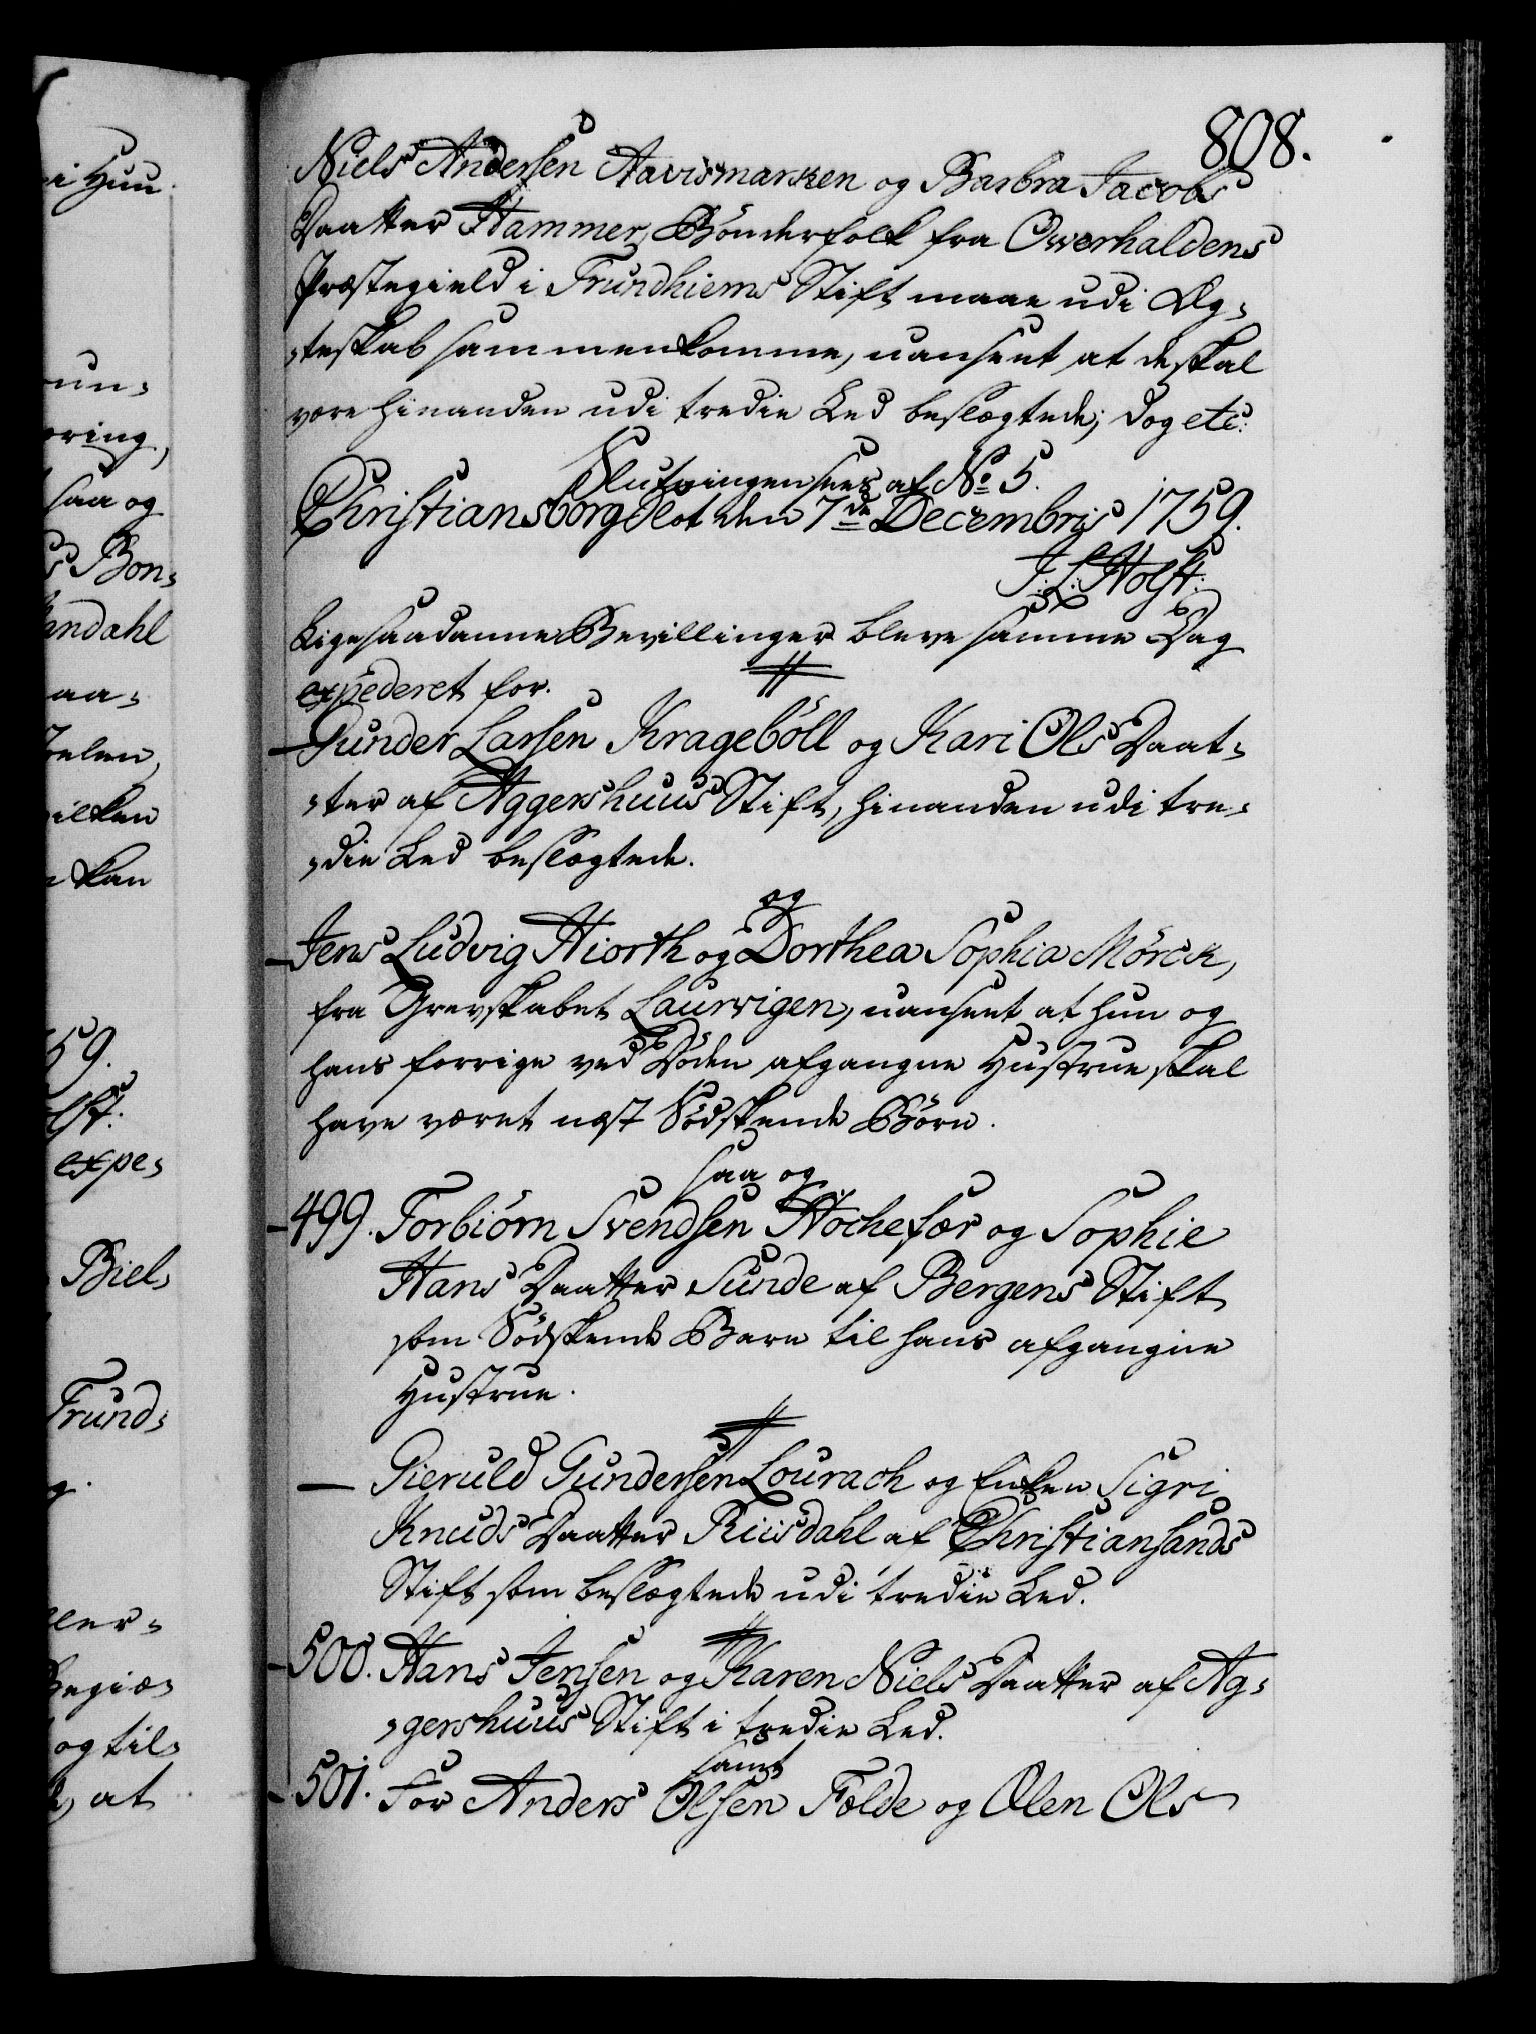 808.
Niels Andersen Aavismarken og Barbra Jacobs
Daatter Hammer, Bönderfolk fra Owerhaldens
Præstegield i Trundhiems Stift maae udi Æg-
-teskab sammenkomme, uanseet at de skal
være hinanden udi tredie Led beslægtede; dog etc:
Slutningen sees af No 5.
Christiansborg Slot den 7de Decembris 1759.
J. L. Holst.
Ligesaadanne Bevillinger bleve samme Dag
expederet for.
- Gunder Larsen Krageböll og Kari Ols Daat-
-ter af Aggershuus Stift, hinanden udi tre-
-die Led beslægtede.
og
- Jens Ludvig Hiorth og Dorthea Sophia Mörck,
fra Grevskabet Laurvigen, uanseet at hun og
hans forrige ved Döden afgangne Hustrue skal
have været næst Södskende Börn.
saa og
- 499. Torbiörn Svendsen Höchefær og Sophie
Hans Daatter Sunde af Bergens Stift
som Södskende Barn til hans afgangne
Hustrue.
- Gieruld Gundersen Lourach og Enken Sigri
Knuds Daatter Riisdahl af Christiansands
Stift som beslægtede udi tredie Led.
- 500. Hans Jensen og Karen Niels Daatter af Ag-
-gershuus Stift i tredie Led.
samt
- 501. For Anders Olsen Folde og Olen Ols
i Huu
run-
æring,
saa og
s Bon-
andahl
aa-
ilken
kan
59.
lst.
expe-
Biel-
Trund-
g.
ller-
Begiæ-
og til-
at